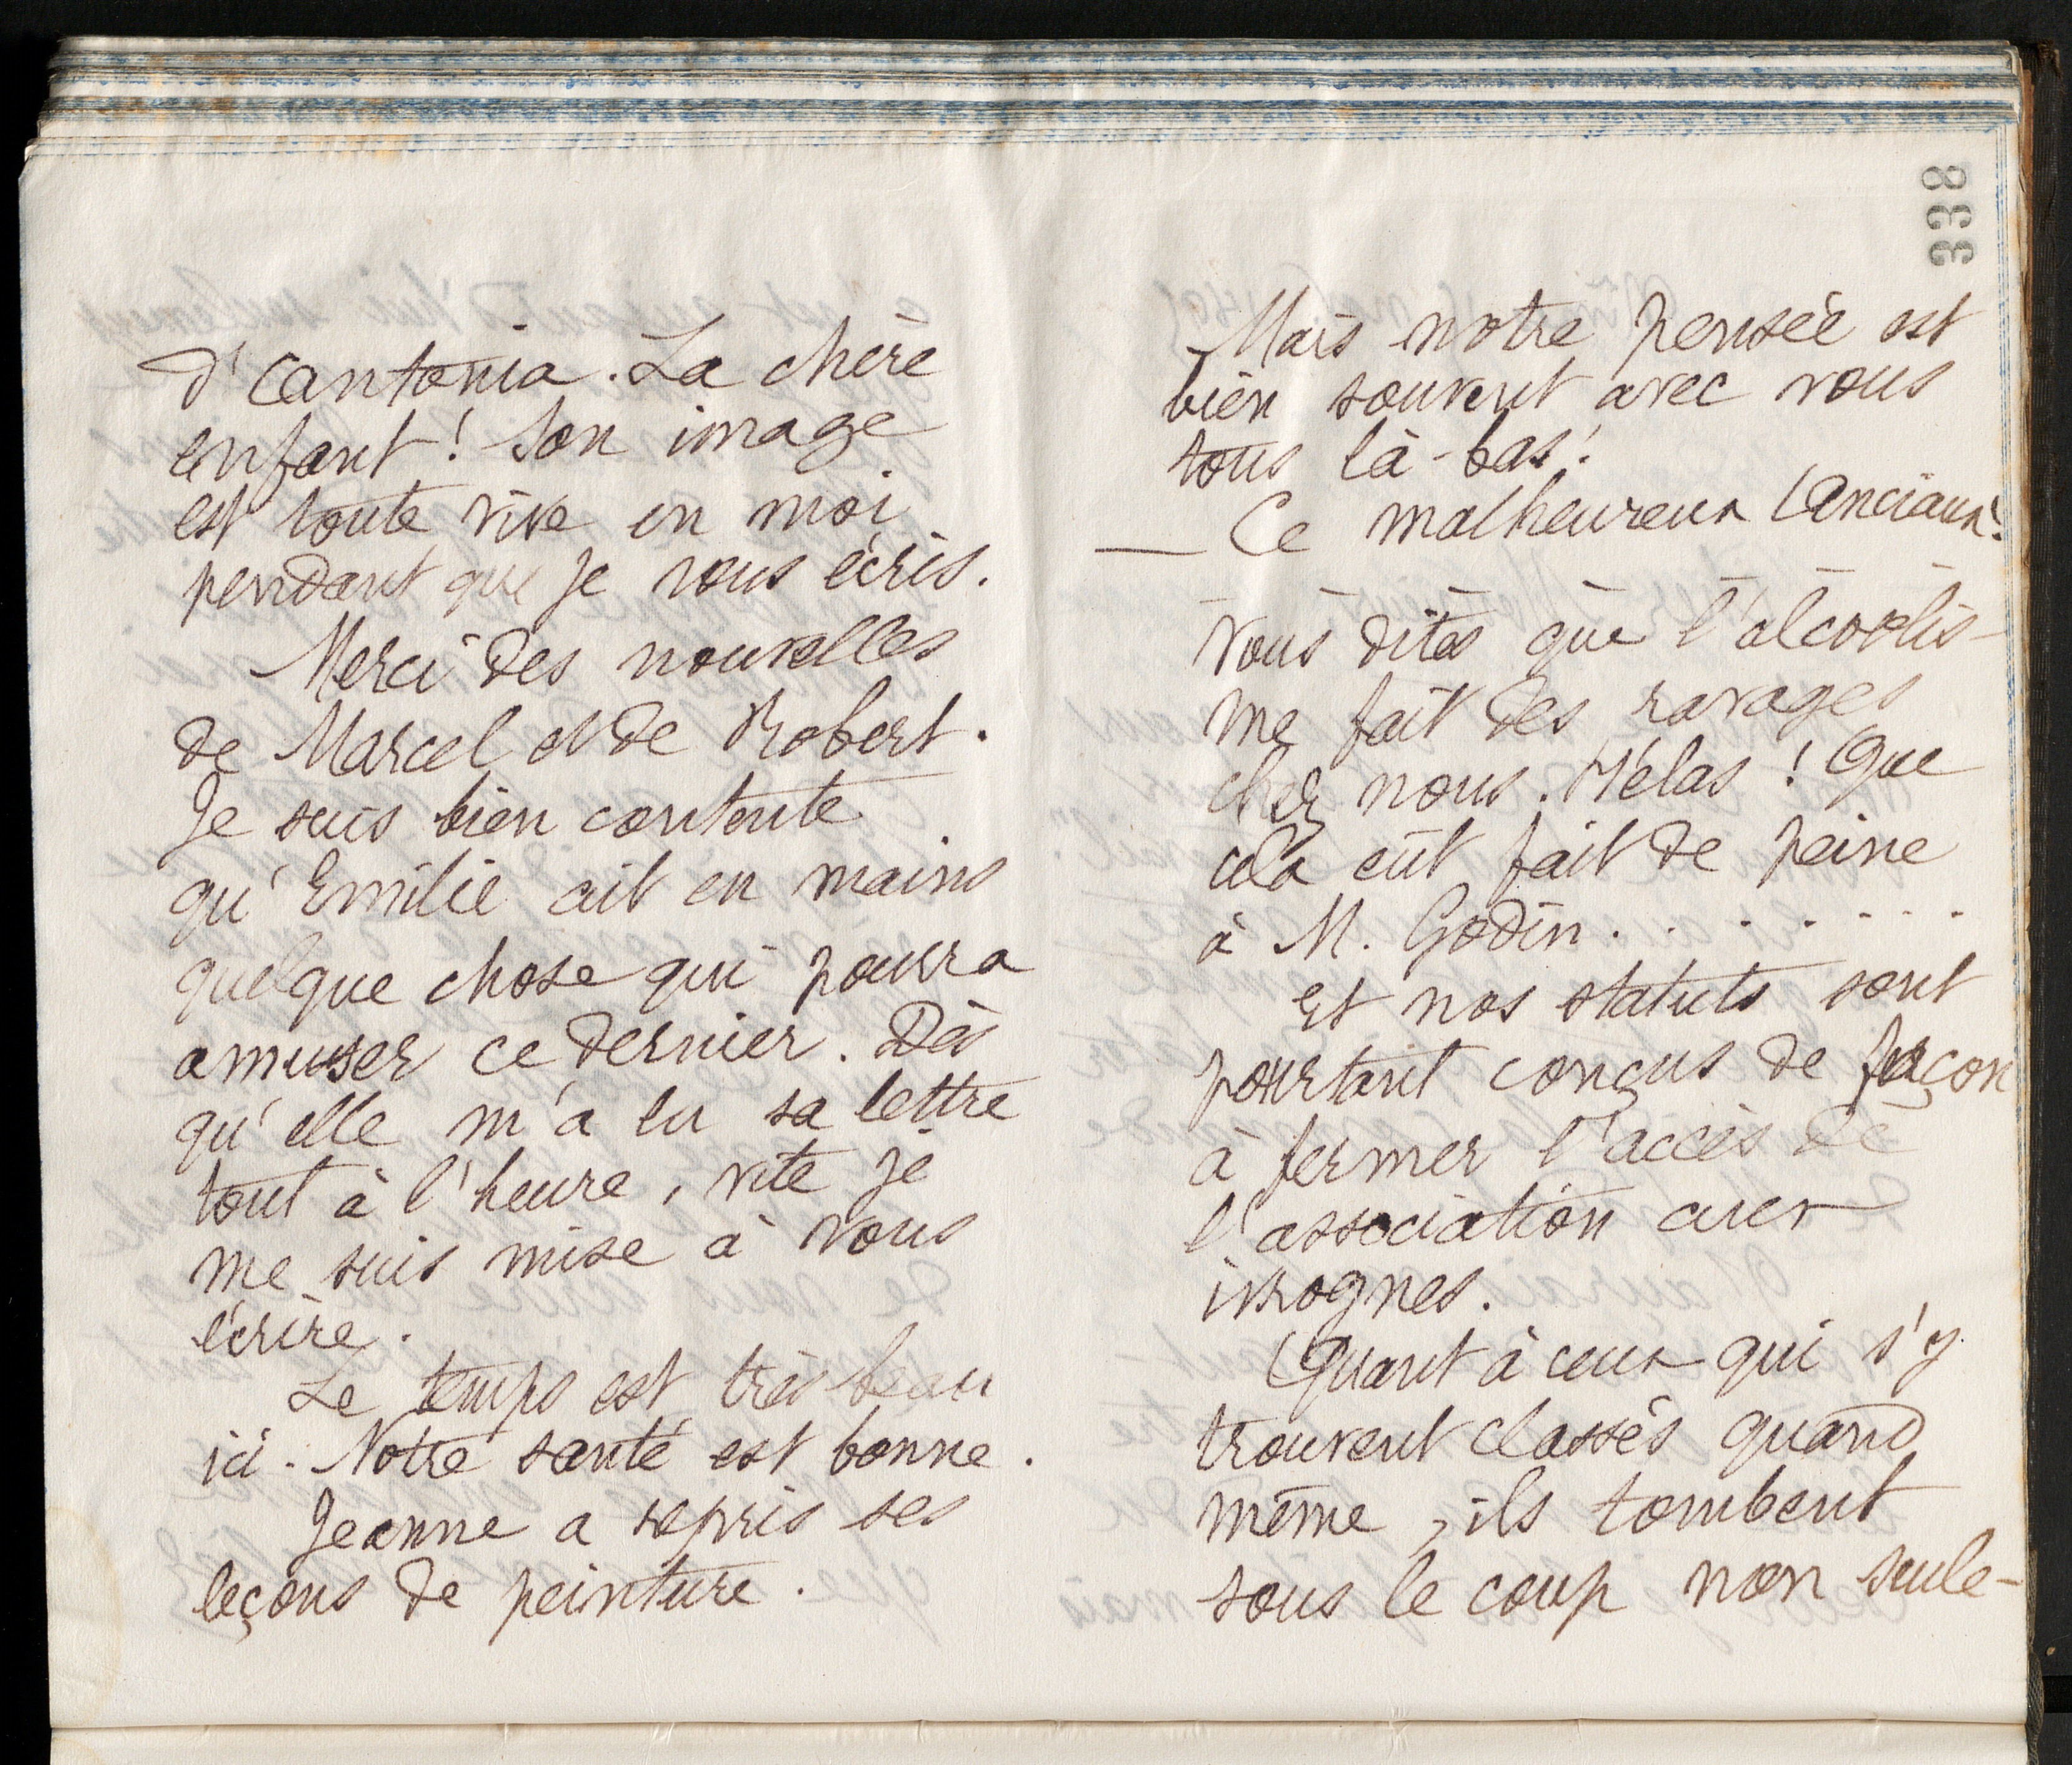 d'Cantonia. La chère
enfant ! Son image
est toute vive en moi
pendant que je vous écris.
Merci des nouvelles
de Marcel et de Robert.
Je suis bien contente
qu'Emilie ait en mains
quelque chose qui pourra
amuser ce dernier. Dès
qu'elle m'a lu sa lettre
tout à l'heure, vite je
me suis mise à vous
écrire.
Le temps est très beau
ici. Notre santé est bonne.
Jeanne a repris ses
leçons de peinture.
338
Mais notre pensée est
bien souvent avec vous
tous là-bas !
— Ce malheureux Lanciaux !
Vous dites que l'alcoolis-
me fait des ravages
chez nous. Hélas ! Que
cela eût fait de peine
à M. Godin . . . . . . .
Et nos statuts sont
pourtant conçus de façon
à fermer l'accès de
l'association aux
ivrognes.
Quant à ceux qui s'y
trouvent classés quand
même, ils tombent
sous le coup non seule-